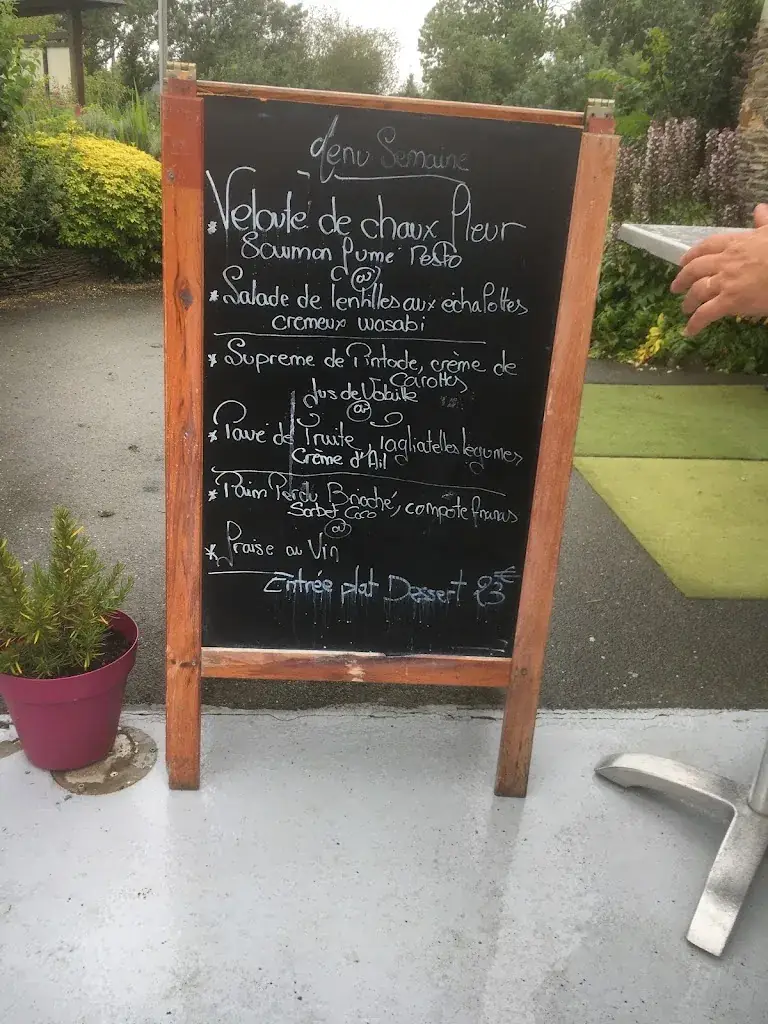 Menu Semaine
* Velouté de chaux fleur
Saumon fumé Pesto
@
* Salade de lentilles aux échalottes
crémeux wasabi
* Supreme de Pintade, crème de
Carottes
Jus de Volaille
@
* Pavé de Truite Tagliatelles légumes
Crème d'Ail
* Pain Perdu Brioché, compote Ananas
Sorbet Coco
@
* Fraise au Vin
Entrée plat Dessert 23€